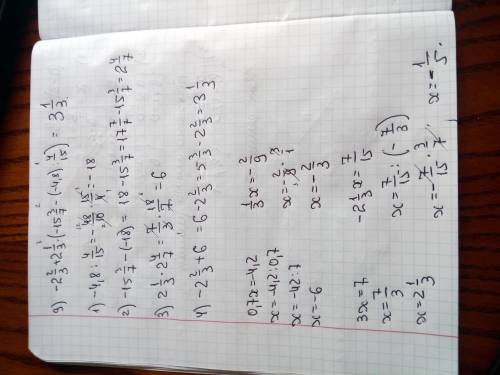 g) -2 2/3 + 2 1/3 · (-15 3/7 - (-4,8) : 4/15) = 3 1/3.
1) -4,8 : 4/15 = -48/10 · 15/4 = -18
2) -15 3/7 - (-18) = 18 - 15 3/7 = 17 7/7 - 15 3/7 = 2 4/7
3) 2 1/3 · 2 4/7 = 7/3 · 18/7 = 6
4) -2 2/3 + 6 = 6 - 2 2/3 = 5 3/3 - 2 2/3 = 3 1/3
0,7x = -4,2
x = -4,2 : 0,7
x = -42 : 7
x = -6
1/3 x = -2/9
x = -2/9 · 3/1
x = -2/3
3x = 7
x = 7/3
x = 2 1/3
-2 1/3 x = 7/15
x = 7/15 : (-7/3)
x = -7/15 · 3/7
x = -1/5.